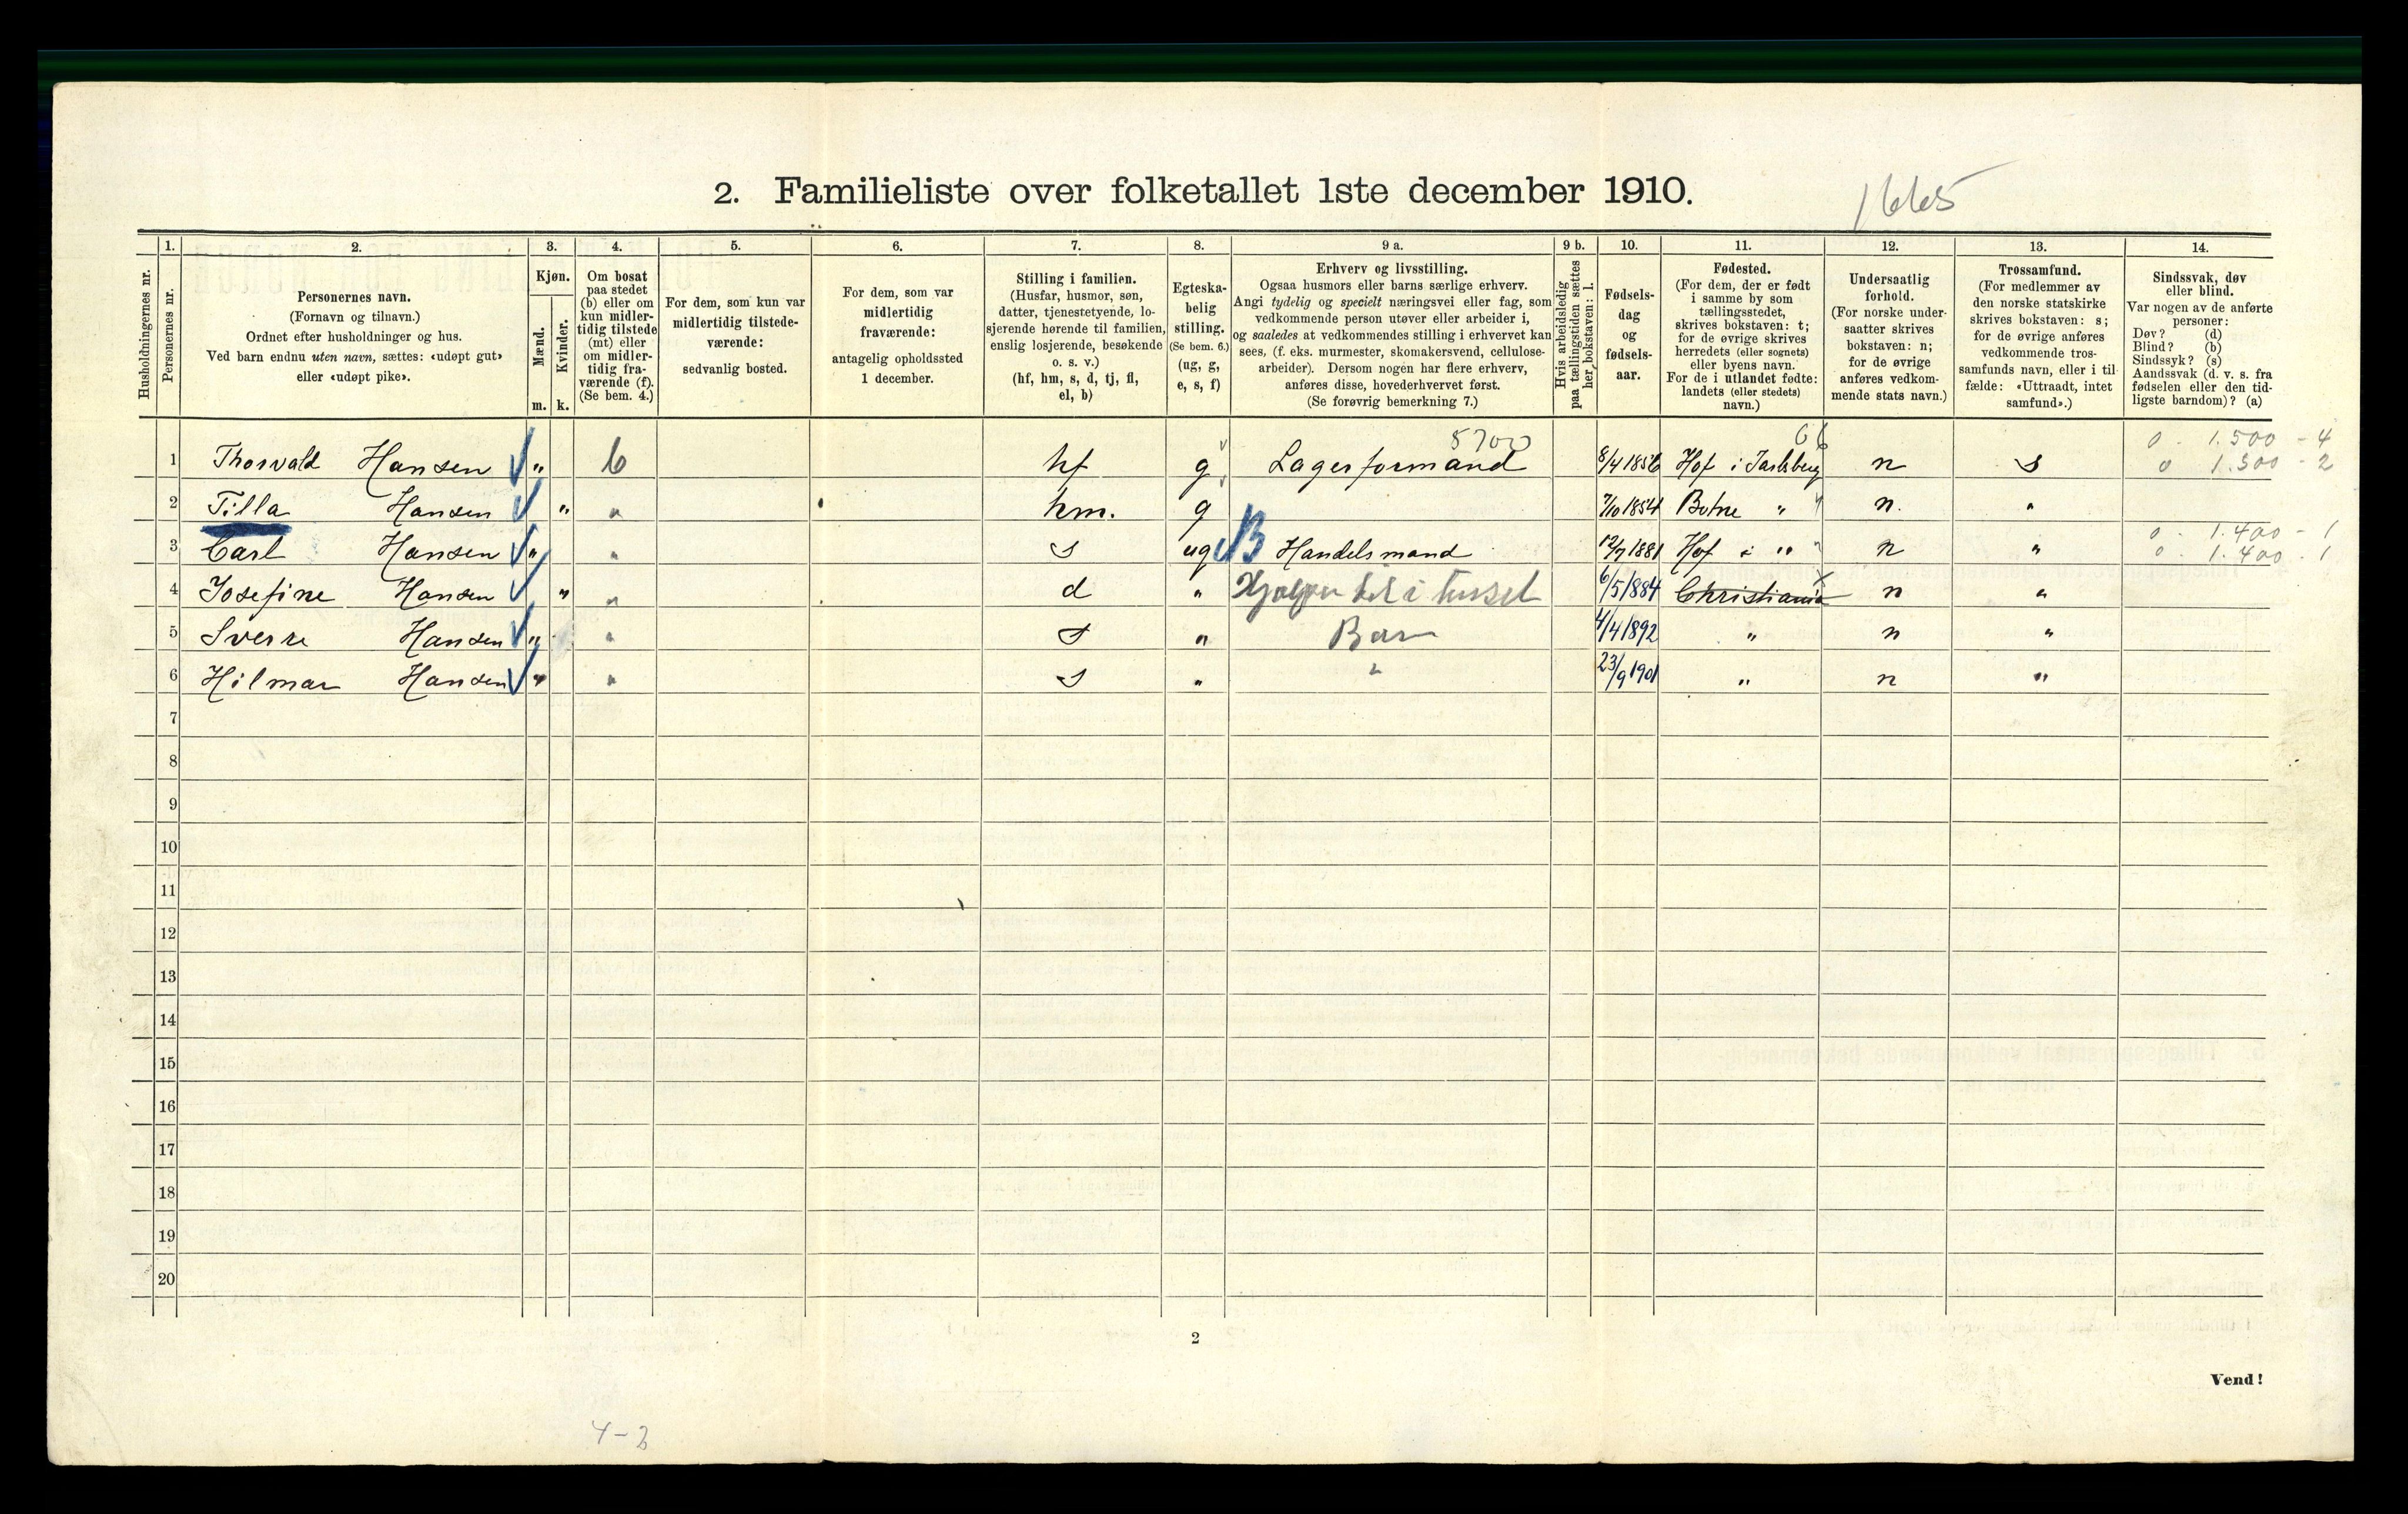 2. Familieliste over folketallet 1ste december 1910.
1665
Husholdningernes nr.
1.
Personernes nr.
2.
Personernes navn.
(Fornavn og tilnavn.)
Ordnet efter husholdninger og hus.
Ved barn endnu uten navn, sættes: «udøpt gut»
eller «udøpt pike».
3.
Kjøn.
Mænd.
m.
Kvinder.
k.
4.
Om bosat
paa stedet
(b) eller om
kun midler-
tidig tilstede
(mt) eller
om midler-
tidig fra-
værende (f).
(Se bem. 4.)
5.
For dem, som kun var
midlertidig tilstede-
værende:
sedvanlig bosted.
6.
For dem, som var
midlertidig
fraværende:
antagelig opholdssted
1 december.
7.
Stilling i familien.
(Husfar, husmor, søn,
datter, tjenestetyende, lo-
sjerende hørende til familien,
enslig losjerende, besøkende
o. s. v.)
(hf, hm, s, d, tj, fl,
el, b)
8.
Egteska-
belig
stilling.
(Se bem. 6.)
(ug, g,
e, s, f)
9 a.
Erhverv og livsstilling.
Ogsaa husmors eller barns særlige erhverv.
Angi tydelig og specielt næringsvei eller fag, som
vedkommende person utøver eller arbeider i,
og saaledes at vedkommendes stilling i erhvervet kan
sees, (f. eks. murmester, skomakersvend, cellulose-
arbeider). Dersom nogen har flere erhverv,
anføres disse, hovederhvervet først.
(Se forøvrig bemerkning 7.)
9 b.
Hvis arbeidsledig
paa tællingstiden sættes
her bokstaven: l.
10.
Fødsels-
dag
og
fødsels-
aar.
11.
Fødested.
(For dem, der er født
i samme by som
tællingsstedet,
skrives bokstaven: t;
for de øvrige skrives
herredets (eller sognets)
eller byens navn.
For de i utlandet fødte:
landets (eller stedets)
navn.)
12.
Undersaatlig
forhold.
(For norske under-
saatter skrives
bokstaven: n;
for de øvrige
anføres vedkom-
mende stats navn.)
13.
Trossamfund.
(For medlemmer av
den norske statskirke
skrives bokstaven: s;
for de øvrige anføres
vedkommende tros-
samfunds navn, eller i til-
fælde: «Uttraadt, intet
samfund».)
14.
Sindssvak, døv
eller blind.
Var nogen av de anførte
personer:
Døv? (d)
Blind? (b)
Sindssyk? (s)
Aandssvak (d. v. s. fra
fødselen eller den tid-
ligste barndom)? (a)
5700 0 - 1.500 - 4
1 Thorvald Hansen " b hf g Lagerformand 8/4 1856 Hof i Jarlsberg n s 0 1.500 - 2
2 Tilla Hansen " " hm. g 7/10 1854 Botne " n. "
0 - 1.400 - 1
3 Carl Hansen " " s ug B Handelsmand 12/7 1881 Hof i " n " 0 - 1.400 - 1
4 Josefine Hansen " " d " Hjælper til i huset 6/5 1884 Christiania n "
5 Sverre Hansen " " s " Barn 4/4 1892 " n "
6 Hilmar Hansen " " s " " 23/9 1901 " n "
7
8
9
10
11
12
13
14
15
16
17
18
19
20
2
Vend!
4-2